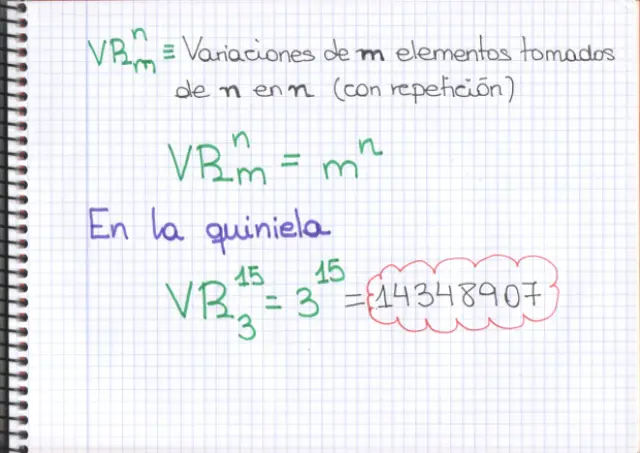 VRₘⁿ ≡ Variaciones de m elementos tomados
de n en n (con repetición)
VRₘⁿ = mⁿ
En la quiniela
VR₃¹⁵ = 3¹⁵ = 14348907